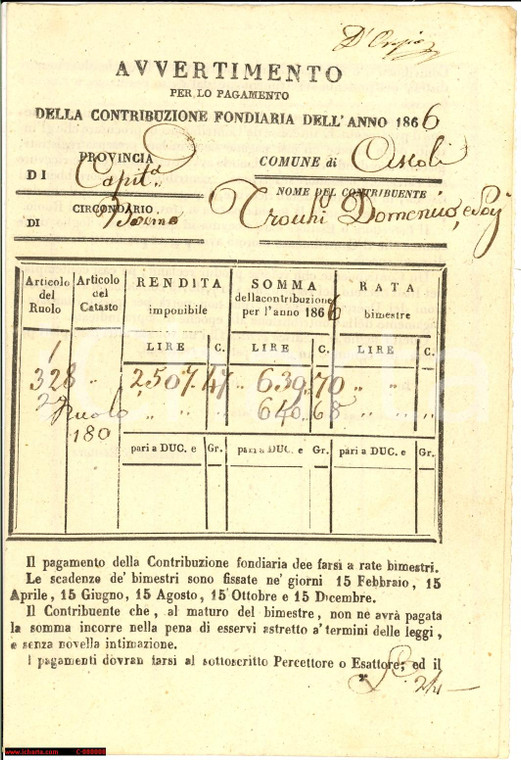 D'Orazio
AVVERTIMENTO
PER LO PAGAMENTO
DELLA CONTRIBUZIONE FONDIARIA DELL'ANNO 1866
PROVINCIA
DI Capit.ta
COMUNE di Ascoli
CIRCONDARIO
DI Bovino
NOME DEL CONTRIBUENTE
Domenico, e
Articolo del Ruolo
Articolo del Catasto
RENDITA imponibile
SOMMA della contribuzione per l'anno 1866
RATA bimestre
LIRE C. LIRE C. LIRE C.
1
328 " 2,507. 47 " 639, 70 " "
2 Ruolo " " " 640. 68 " " "
180
pari a DUC. e Gr. pari a DUC. e Gr. pari a DUC. e Gr.
Il pagamento della Contribuzione fondiaria dee farsi a rate bimestri.
Le scadenze de' bimestri sono fissate ne' giorni 15 Febbraio, 15
Aprile, 15 Giugno, 15 Agosto, 15 Ottobre e 15 Dicembre.
Il Contribuente che, al maturo del bimestre, non ne avrà pagata
la somma incorre nella pena di esservi astretto a' termini delle leggi,
e senza novella intimazione.
I pagamenti dovran farsi al sottoscritto Percettore o Esattore; ed il
www.icharta.com C-080808
iCharta